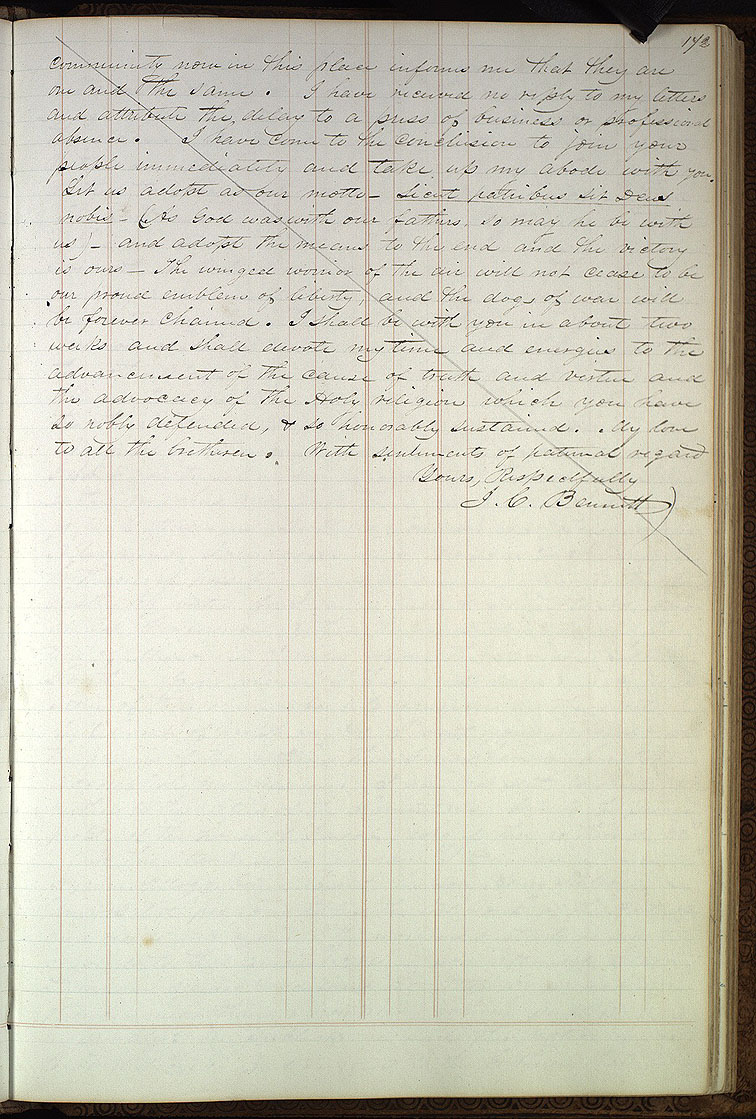 172
community now in this place informs me that they are
one and the same. I have received no reply to my letters
and attribute the delay to a press of business or professional
absence. I have come to the conclusion to join your
people immediately and take up my abode with you.
Let us adopt as our motto – Sicut patribus sit Deus
nobis – (As God was with our fathers, so may he be with
us) – and adopt the means to the end and the victory
is ours – The winged warrior of the air will not cease to be
our proud emblem of liberty, and the dogs of war will
be forever chained. I shall be with you in about two
weeks and shall devote my time and energies to the
advancement of the cause of truth and virtue and
the advocacy of the Holy religion which you have
so nobly defended, & so honorably sustained. My love
to all the brethren. With sentiments of paternal regard
Yours, Respectfully
J. C. Bennett)